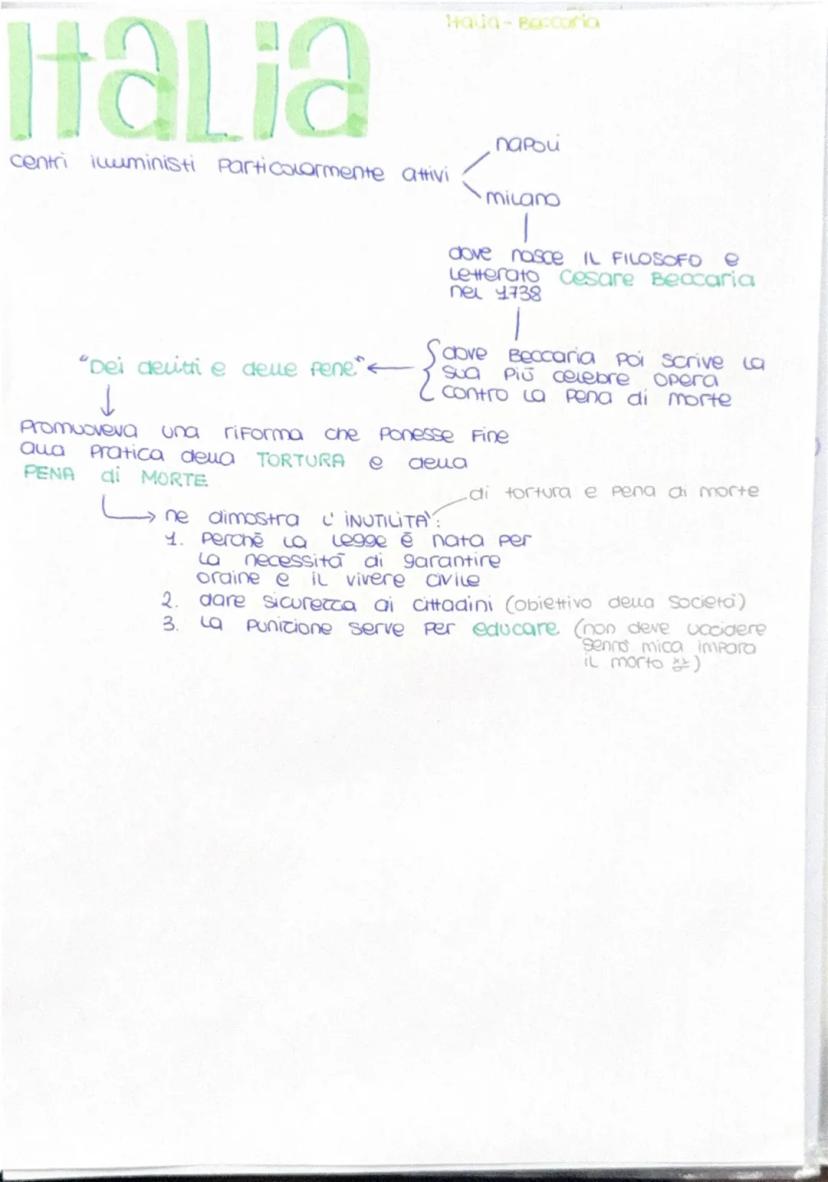 Italia - Beccaria
Italia
napoli
centri illuministi particolarmente attivi
milano
dove nasce IL FILOSOFO e
letterato Cesare Beccaria
nel 1738
dove Beccaria poi scrive la
sua più celebre opera
contro la pena di morte
"Dei delitti e delle pene"
Promuoveva una riforma che ponesse fine
alla pratica della TORTURA e della
PENA di MORTE
di tortura e pena di morte
ne dimostra L'INUTILITÀ:
1. Perché la legge è nata per
la necessità di garantire
ordine e il vivere civile
2. dare sicurezza ai cittadini (obiettivo della società)
3. la punizione serve per educare (non deve uccidere
sennò mica impara
il morto )